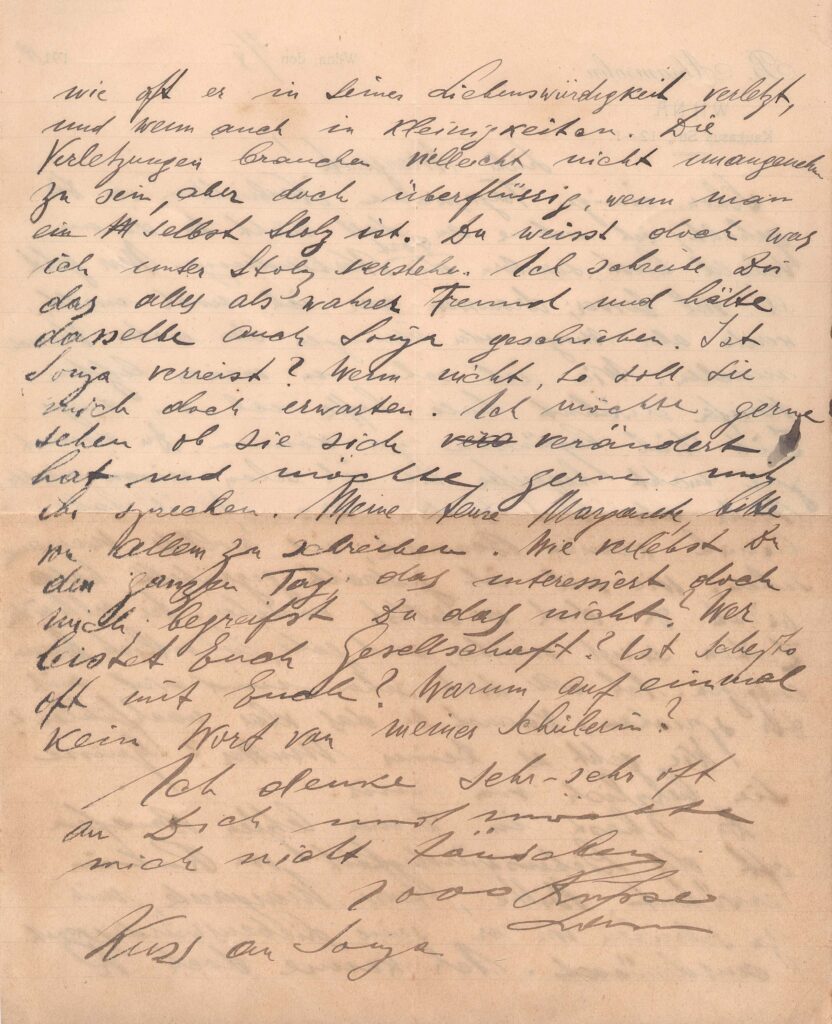 wie oft er in seiner Liebenswürdigkeit verletzt,
und wenn auch in kleinigkeiten. Die
Verletzungen brauchen vielleicht nicht unangenehm
zu sein, aber doch überflüssig, wenn man
ein selbst Stolz ist. Du weisst doch was
ich unter Stolz verstehe. Ich schreibe Dir
das alles als wahrer Freund und hätte
dasselbe auch Sonja geschrieben. Ist
Sonja verreist? Wenn nicht, so soll sie
mich doch erwarten. Ich möchte gerne
sehen ob sie sich verändert
hat und möchte gerne mit
ihr sprechen. Meine teure Margarete, bitte
von allem zu schreiben. Wie verlebst Du
den ganzen Tag, das interessiert doch
mich, begreifst Du das nicht? Wer
leistet Euch Gesellschaft? Ist
oft mit Euch? Warum auf einmal
kein Wort von meiner Schülerin?
Ich denke sehr-sehr oft
an Dich und möchte
mich nicht täuschen
1000 Küsse
Kuss an Sonja